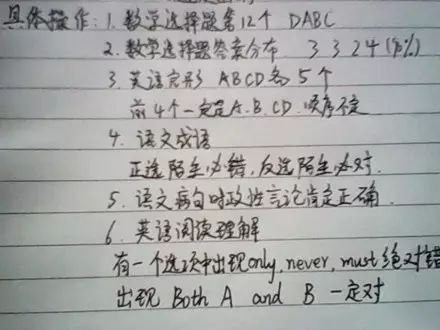 具体操作：1. 数学选择题第12个 DABC
2. 数学选择题答案分布 3 3 2 4 (90%)
3. 英语完形 ABCD各5个
前4个一定是A.B.CD.顺序不定
4. 语文成语
正选陌生必错，反选陌生必对.
5. 语文病句时政性言论肯定正确.
6. 英语阅读理解
有一个选项中出现only, never, must 绝对错
出现 Both A and B 一定对